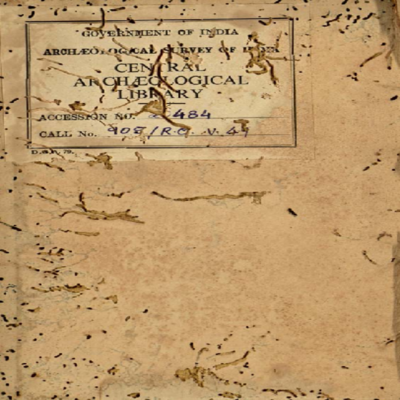 GOVERNMENT OF INDIA
ARCHÆOLOGICAL SURVEY OF INDIA
CENTRAL
ARCHÆOLOGICAL
LIBRARY
ACCESSION NO. 484
CALL No. 905/R.C. V.4
D.G.A. 79.